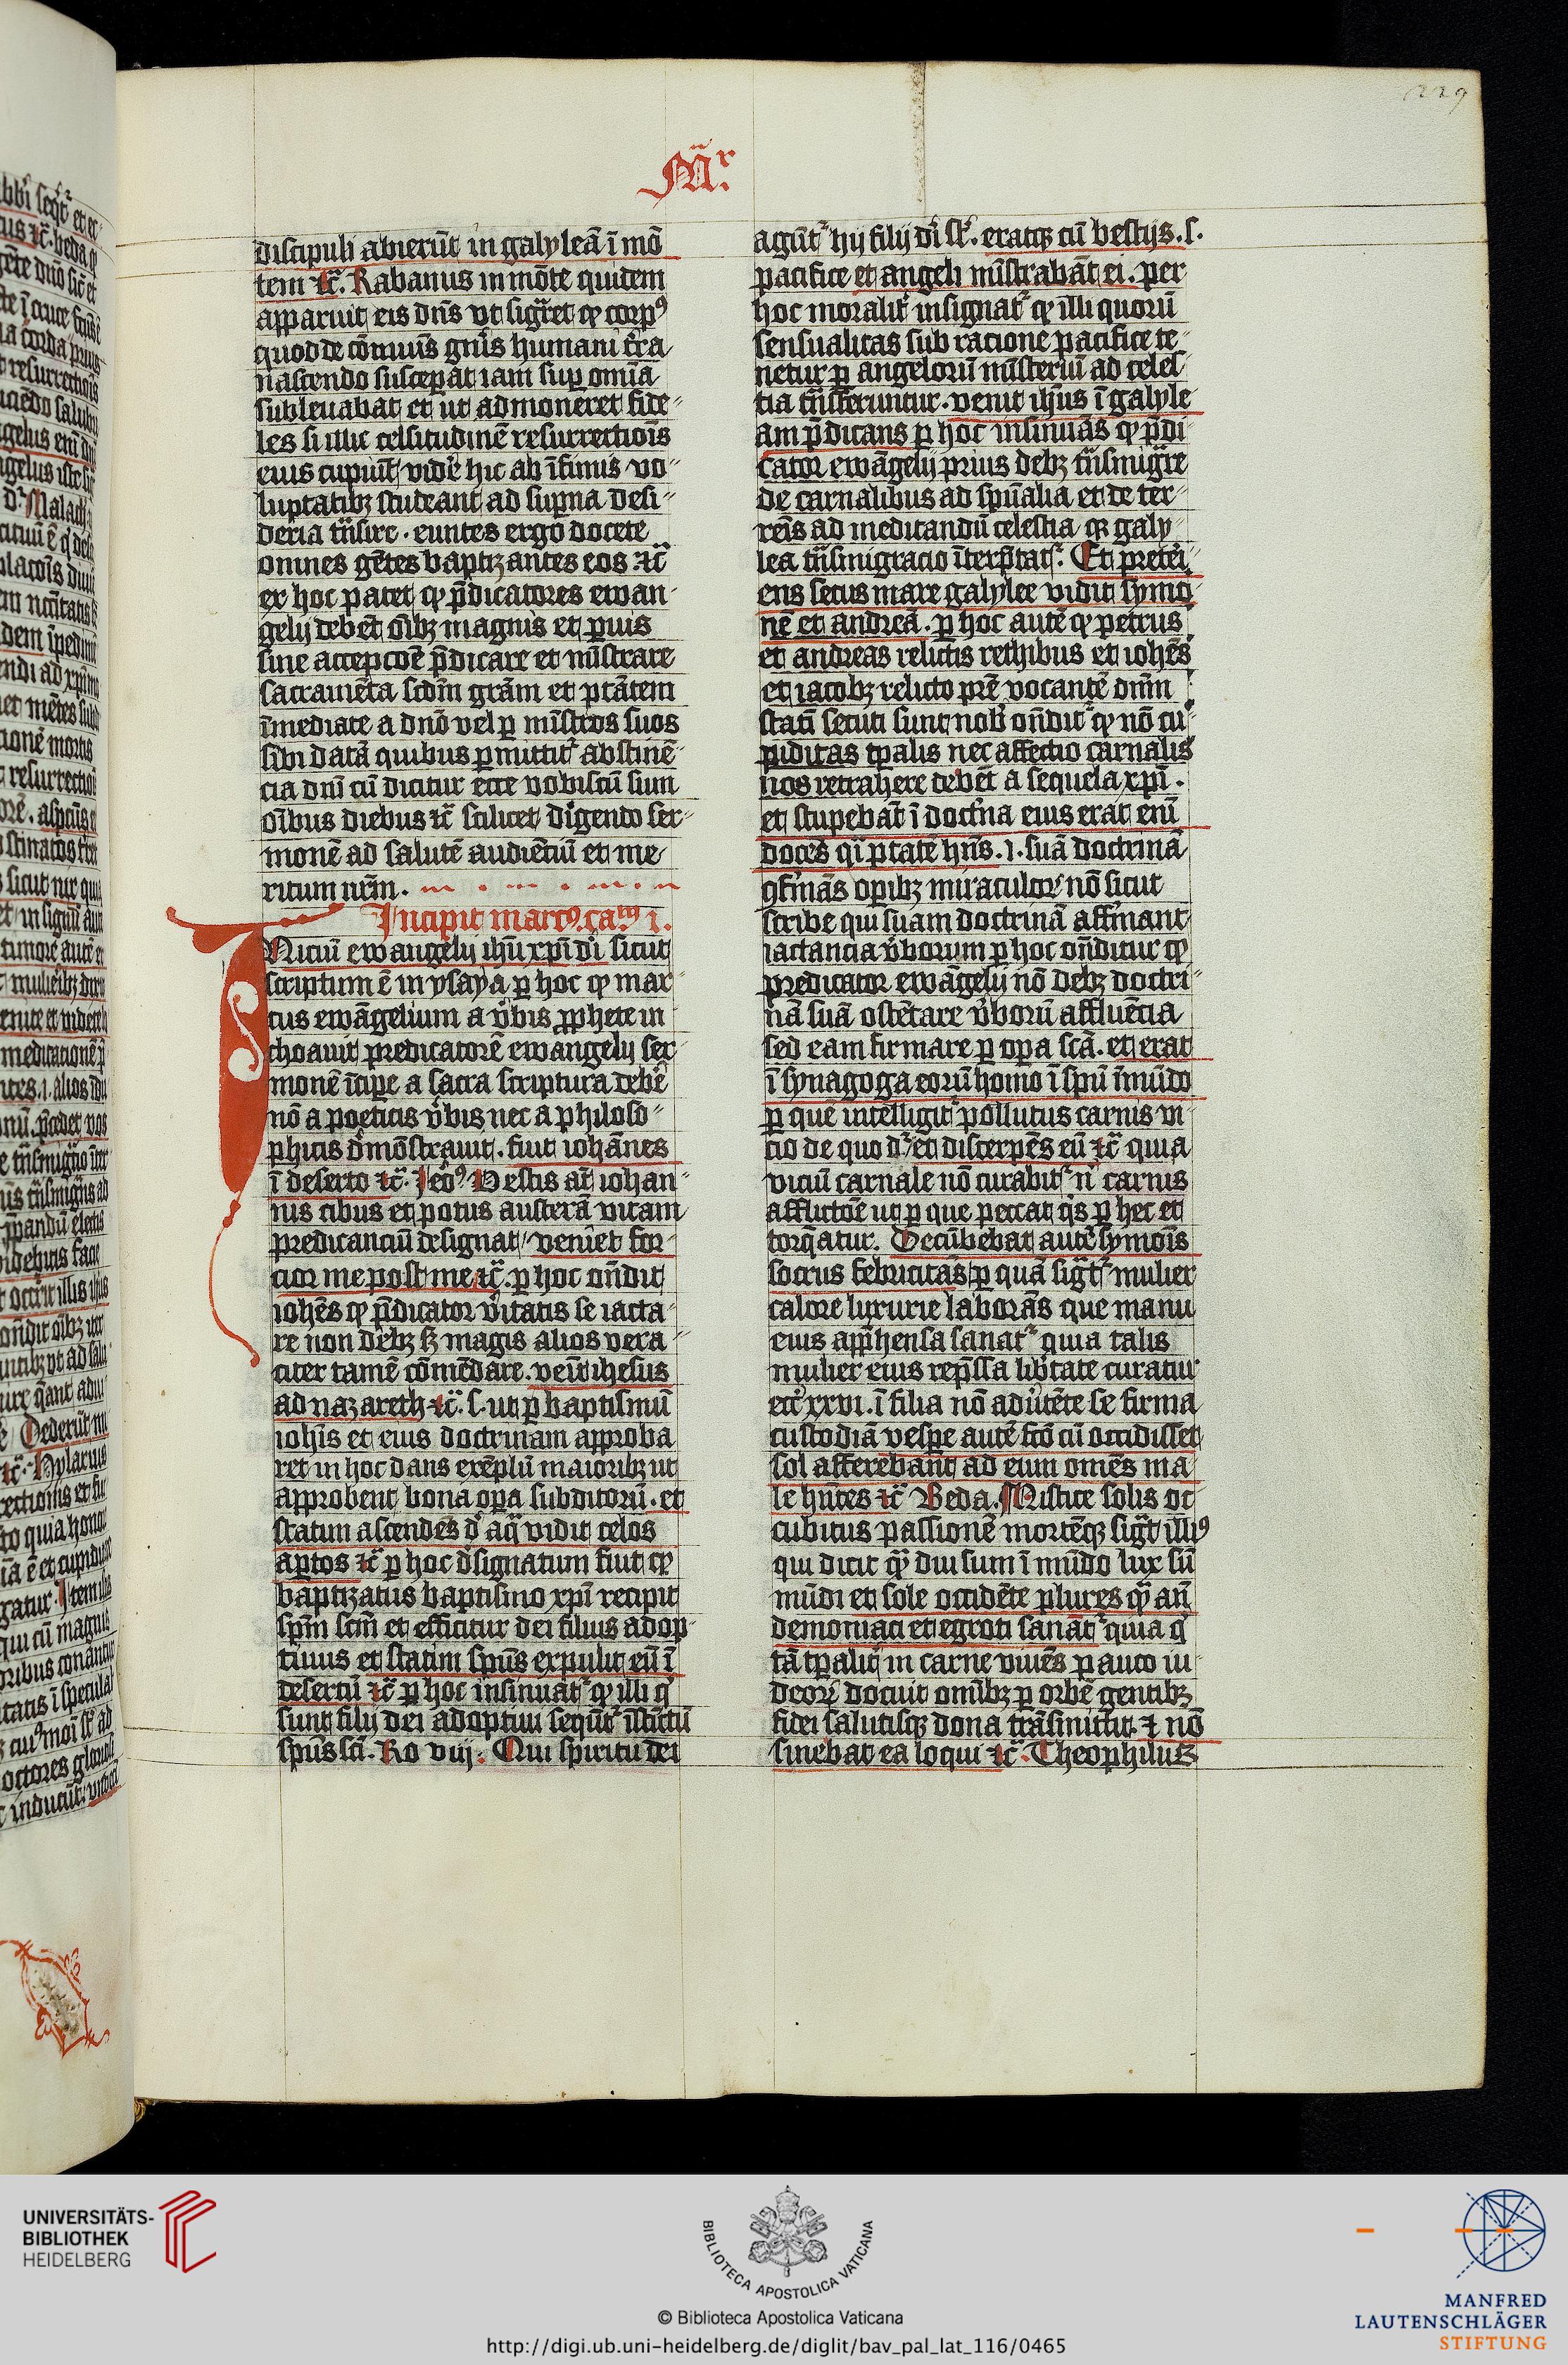 229
Mr
discipuli abierūt in galyleā ī mō
tem ⁊c̄. Rabanus in mōte quidem
apparuit eis dn̄s vt sigr̄et ꝙ corpꝰ
quod de cōmunis gn̄is humani t̄ra
nascendo suscepat iam sup om̄ia
subleuabat et ut admoneret fide
les si illic celsitudinē resurrectiōis
eius cupiūt vidē hic ab īfimis vo
luptatibꝫ studeant ad supna desi
deria trn̄sire . euntes ergo docete
omnes gētes baptizantes eos ⁊c̄
ex hoc patet ꝙ p̄dicatores ewan
gelij debēt oībꝫ magnis et ꝑuis
sine accepcōe p̄dicare et mīstrare
sacramēta scdm̄ grām et ptātem
īmediate a dnō vel ꝑ mīstros suos
sibi datā quibus ꝑmittit̉ abstinē
cia dnī cū dicitur ecce vobiscū sum
oībus diebus ⁊c̄ scilicet dīgendo ser
monē ad salutē audiētiū et me
ritum nr̄m .
Incipit marcꝰ. cam̄ i.
INiciū ewangelij ihū xpī dī sicut
scriptum ē in ysaya ꝑ hoc ꝙ mar
cus ewāgelium a v̉bis ꝓphete in
choauit predicatorē ewangelij ser
monē īcipe a sacra scriptura debē
nō a poeticis v̉bis nec a philoso
phicis d̉mōstrauit . fuit iohānes
ī deserto ⁊c̄. Ieōꝰ Vestis at̄ iohan
nis cibus et potus austerā vitam
predicanciū designat / veniet for
cior me post me ⁊c̄. ꝑ hoc on̄dit
iohēs ꝙ p̄dicator v̉itatis se iacta
re non debꝫ sꝫ magis alios vera
citer tamē cōmēdare . venīt ihesus
ad nazareth ⁊c̄. s. ut ꝑ baptismū
iohīs et eius doctrinam approba
ret in hoc dans exēplū maioribꝫ ut
approbent bona opa subditorū . et
statim ascendēs d̉ aq̄ vidit celos
aptos ⁊c̄ ꝑ hoc d̉signatum fuit ꝙ
baptizatus baptismo xpī recipit
spm̄ scm̄ et efficitur dei filius adop
tiuus et statim spūs expulit eū ī
desertū ⁊c̄ ꝑ hoc insinuat̉ ꝙ illi q̄
sunt filij dei adoptiui seqūt̉ īstīctū
spūs scī. Ro viij. Qui spiritu dei
agūt̉ hij filij dī st̄. eratqꝫ cū bestijs . s.
pacifice et angeli mīstrabāt ei . per
hoc moralit̉ insignat̉ ꝙ illi quorū
sensualitas sub racione pacifice te
netur ꝑ angelorū mīsteriū ad celes
tia trn̄sferuntur . venit ihūs ī galyle
am p̄dicans ꝑ hoc insinuās ꝙ p̄di
cator ewāgelij prius debꝫ trn̄smigre
de carnalibus ad spūalia et de ter
renīs ad meditandū celestia qꝛ galy
lea trn̄smigracio īterp̄tat̉. Et preteri
ens secus mare galylee vidit symo
nē et andreā . ꝑ hoc autē ꝙ petrus
et andreas relictis rethibus et iohēs
et iacobꝫ relicto prē vocantē dnm̄
statī secuti sunt nob̉ on̄dit̉ ꝙ nō cu
piditas tꝑalis nec affectio carnalis
nos retrahere debēt a sequela xpī .
et stupebāt ī doctn̉a eius erat enī
docēs qi ptatē hn̄s . i. suā doctrinā
ꝯfirmās opibꝫ miraculoꝝ nō sicut
scribe qui suam doctrinā affirmant
iactancia v̉borum ꝑ hoc on̄ditur ꝙ
predicator ewāgelij nō debꝫ doctri
nā suā ostētare v̉borū affluēcia
sed eam firmare ꝑ opa scā . et erat
ī synagoga eorū homo ī spū īmūdo
ꝑ quē intelligit̉ pollutus carnis vi
cio de quo d̉ et discerpēs eū ⁊c̄ quia
viciū carnale nō curabit̉ n̄ carnis
afflictōe ut ꝑ que peccat qis ꝑ hec et
torq̄atur . Decūbebat autē symoīs
socrus febricitās ꝑ quā sigt̄̉ mulier
calore luxurie laborās que manu
eius apphensa sanat̉ quia talis
mulier eius rep̄ssa lib̉tate curatur
ecc̄ xxvi. ī filia nō adūtēte se firma
custodiā vespe autē fcō cū occidisset
sol afferebant ad eum omēs ma
le hn̄tes ⁊c̄ Beda . Mistice solis oc
cubitus passionē mortēqꝫ sigt̄ illiꝰ
qui dicit qm̄ diu sum ī mūdo lux sū
mūdi et sole occidēte plures qm̄ an̄
demoniaci et egroti sanāt̉ quia q̄
tā tꝑalit̉ in carne viuēs pauco iu
deoꝝ docuit omībꝫ ꝑ orbē gentibꝫ
fidei salutisqꝫ dona trāsmittit . ⁊ nō
sinebat ea loqui ⁊c̄. Theophilus
UNIVERSITÄTS-
BIBLIOTHEK
HEIDELBERG
BIBLIOTECA APOSTOLICA VATICANA
© Biblioteca Apostolica Vaticana
http://digi.ub.uni-heidelberg.de/diglit/bav_pal_lat_116/0465
MANFRED
LAUTENSCHLÄGER
STIFTUNG